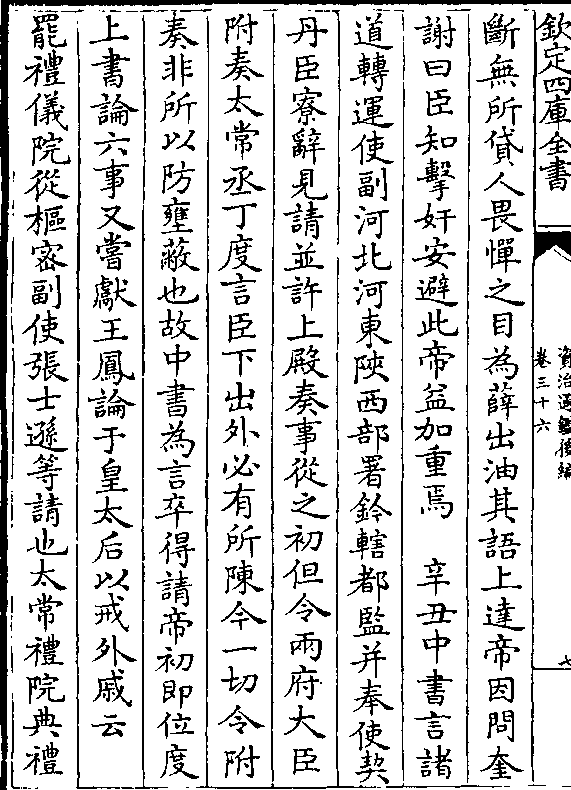 欽定四庫全書
資治通鑑後編
卷三十六
七
斷無所貸人畏憚之目為薛出油其語上達帝因問奎
謝曰臣知擊奸安避此帝益加重焉　辛丑中書言諸
道轉運使副河北河東陜西部署鈐轄都監并奉使契
丹臣寮辭見請並許上殿奏事從之初但令兩府大臣
附奏太常丞丁度言臣下出外必有所陳今一切令附
奏非所以防壅蔽也故中書為言卒得請帝初即位度
上書論六事又嘗獻王鳳論于皇太后以戒外戚云
罷禮儀院從樞密副使張士遜等請也太常禮院典禮